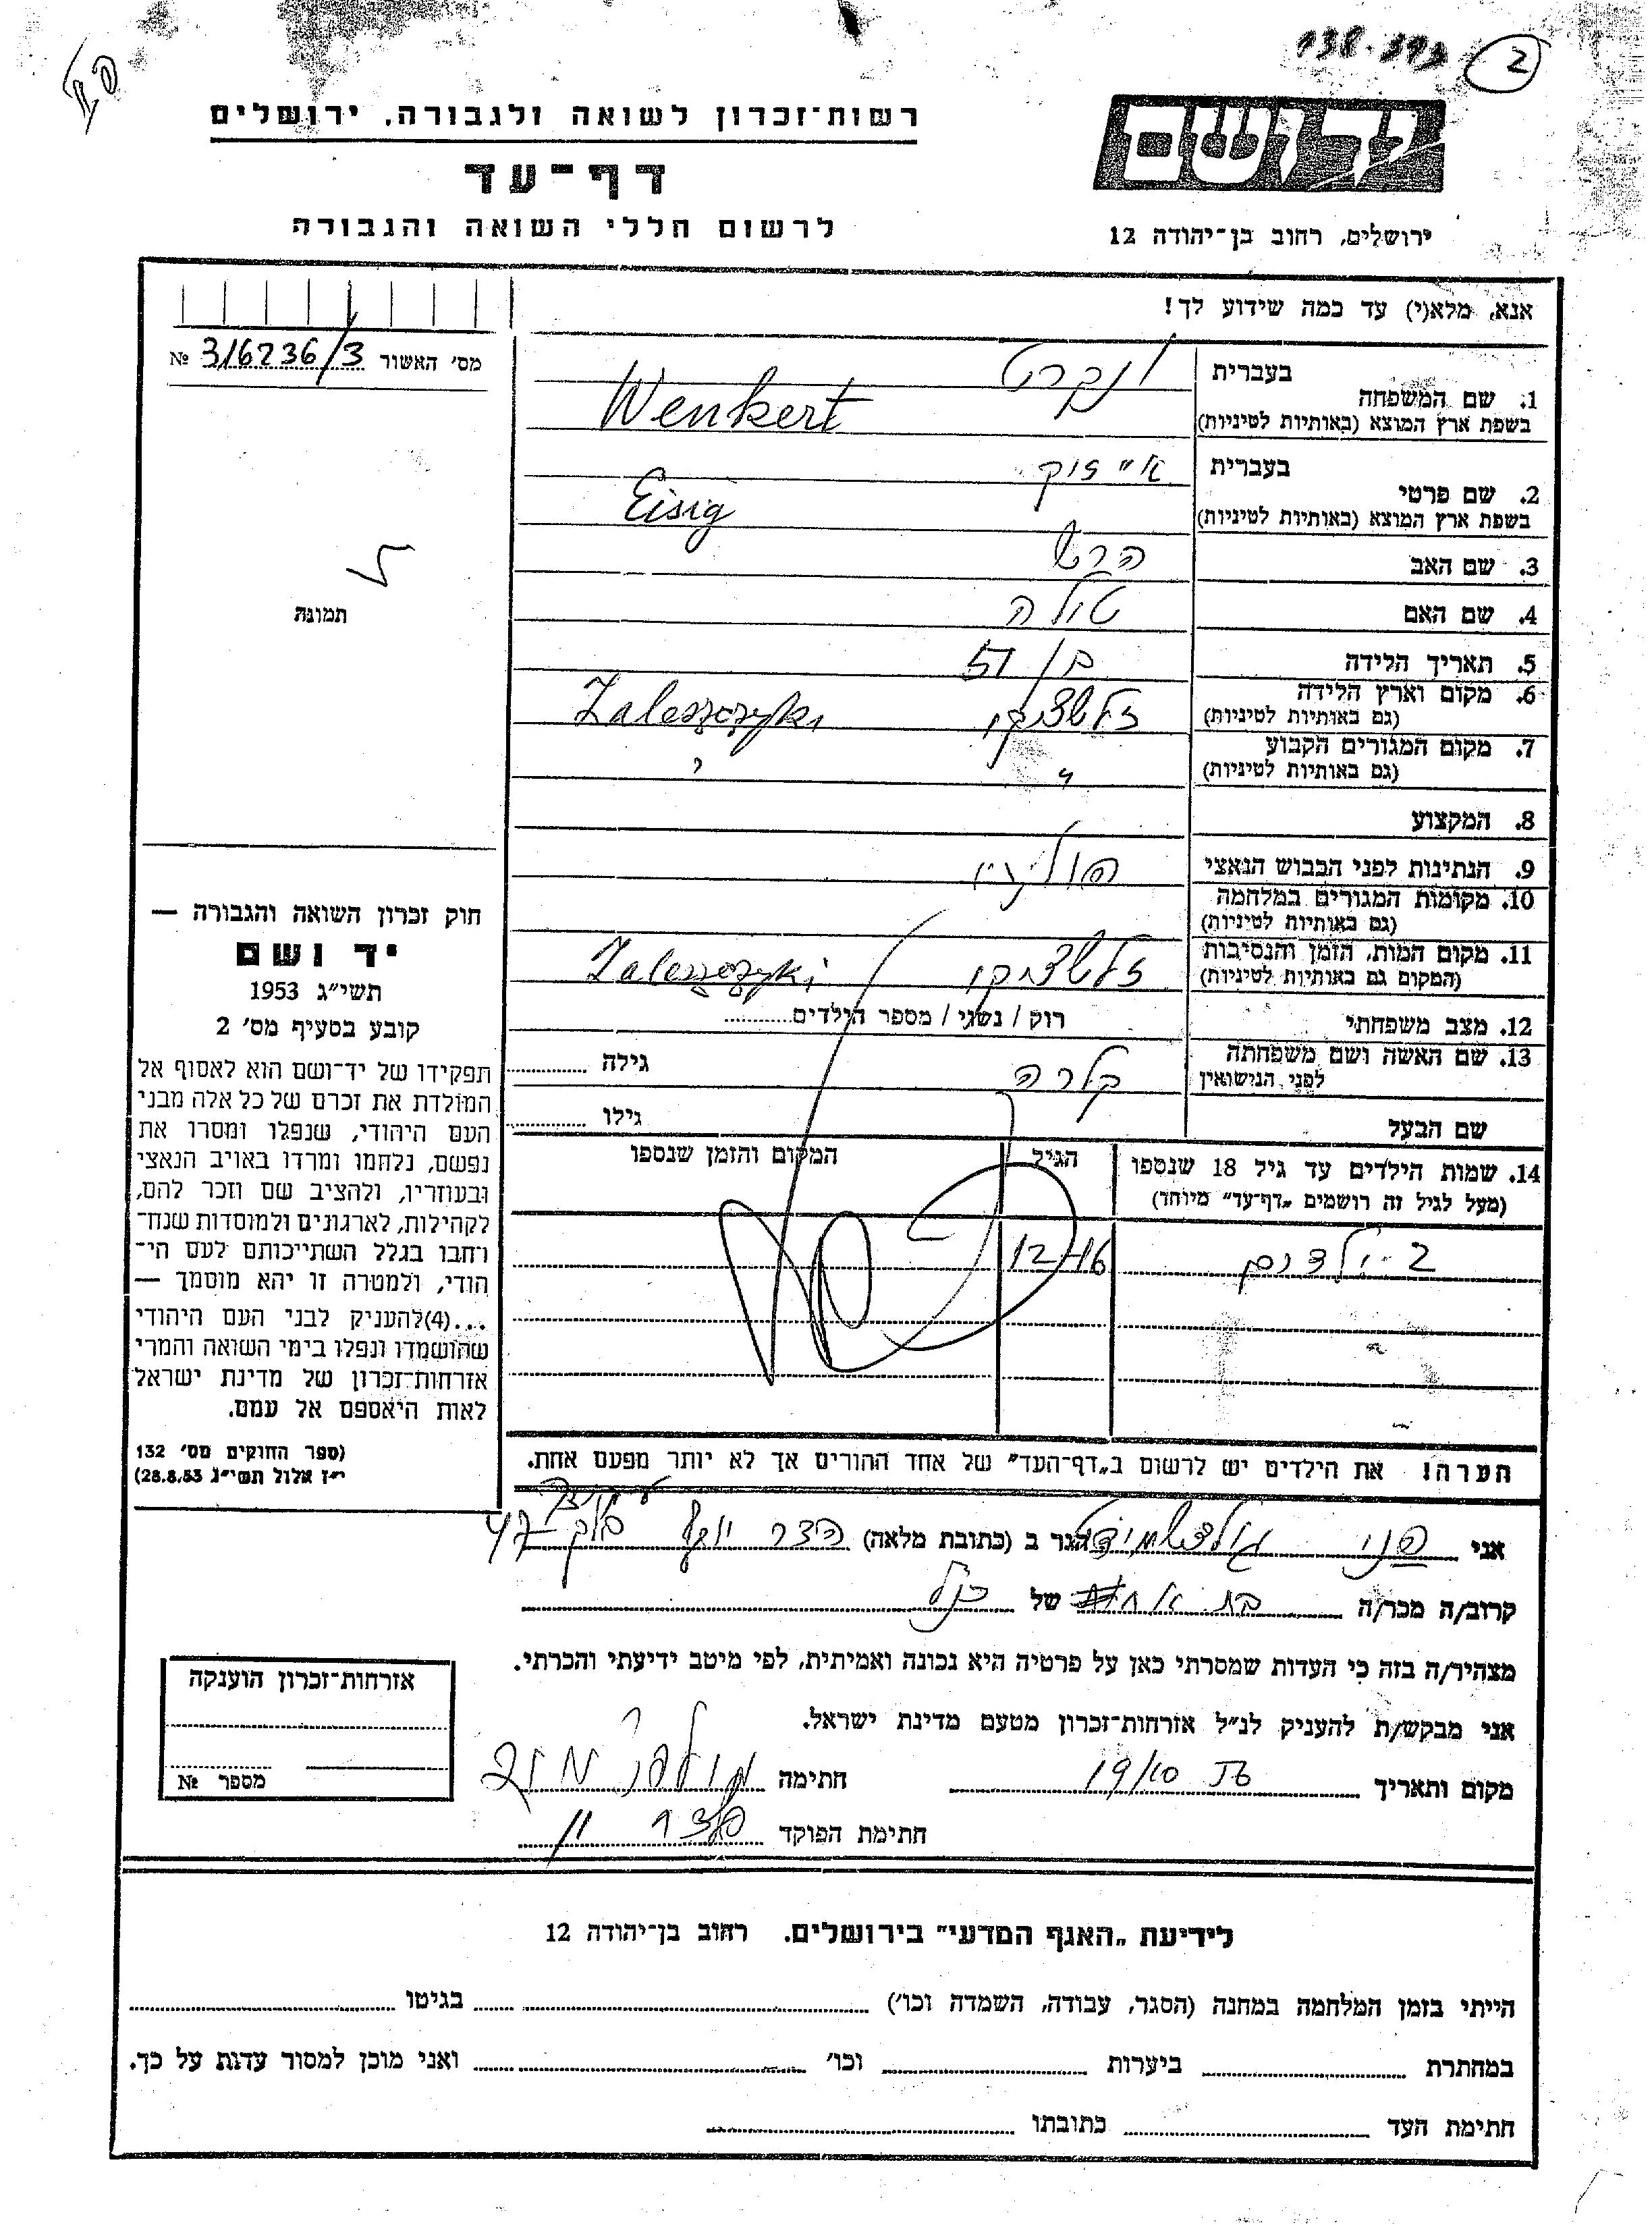 2
רשות־זכרון לשואה ולגבורה, ירושלים
יד ושם
דף־עד
לרשום חללי השואה והגבורה
ירושלים, רחוב בן־יהודה 12
אנא, מלא(י) עד כמה שידוע לך!
מס׳ האשור 316236/3 №
1. שם המשפחה בעברית ונקרט
בשפת ארץ המוצא (באותיות לטיניות) Wenkert
2. שם פרטי בעברית אייזיק
בשפת ארץ המוצא (באותיות לטיניות) Eisig
3. שם האב הרש
4. שם האם טולה
5. תאריך הלידה בן 51
6. מקום וארץ הלידה
(גם באותיות לטיניות) זלשצ'יקי Zaleszczyki
7. מקום המגורים הקבוע
(גם באותיות לטיניות) " "
8. המקצוע
9. הנתינות לפני הכבוש הנאצי
10. מקומות המגורים במלחמה
(גם באותיות לטיניות)
11. מקום המות, הזמן והנסיבות
(המקום גם באותיות לטיניות) זלשצ'יקי Zaleszczyki
12. מצב משפחתי רוק / נשוי / מספר הילדים
13. שם האשה ושם משפחתה
לפני הנישואין קלרה גילה
שם הבעל גילו
14. שמות הילדים עד גיל 18 שנספו הגיל המקום והזמן שנספו
(מעל לגיל זה רושמים „דף־עד״ מיוחד)
2 ילדים 12-16
הערה! את הילדים יש לרשום ב„דף־העד״ של אחד ההורים אך לא יותר מפעם אחת.
תמונה
חוק זכרון השואה והגבורה —
יד ושם
תשי״ג 1953
קובע בסעיף מס׳ 2
תפקידו של יד־ושם הוא לאסוף אל
המולדת את זכרם של כל אלה מבני
העם היהודי, שנפלו ומסרו את
נפשם, נלחמו ומרדו באויב הנאצי
ובעוזריו, ולהציב שם וזכר להם,
לקהילות, לארגונים ולמוסדות שנח־
רחבו בגלל השתייכותם לעם הי־
הודי, ולמטרה זו יהא מוסמך —
...(4)להעניק לבני העם היהודי
שהושמדו ונפלו בימי השואה והמרי
אזרחות־זכרון של מדינת ישראל
לאות היאספם אל עמם.
(ספר החוקים מס׳ 132
י״ז אלול תשי״ג 28.8.53)
אני פני גולדשמידט הגר ב (כתובת מלאה) הדר יוסף בלוק 47
קרוב/ה מכר/ה בת אח של הנ"ל
מצהיר/ה בזה כי העדות שמסרתי כאן על פרטיה היא נכונה ואמיתית, לפי מיטב ידיעתי והכרתי.
אני מבקש/ת להעניק לנ״ל אזרחות־זכרון מטעם מדינת ישראל.
מקום ותאריך 19/10 חתימה
חתימת הפוקד
אזרחות־זכרון הוענקה
מספר №
לידיעת „האגף המדעי״ בירושלים. רחוב בן־יהודה 12
הייתי בזמן המלחמה במחנה (הסגר, עבודה, השמדה וכו׳) בגיטו
במחתרת ביערות וכו׳ ואני מוכן למסור עדות על כך.
חתימת העד כתובתו